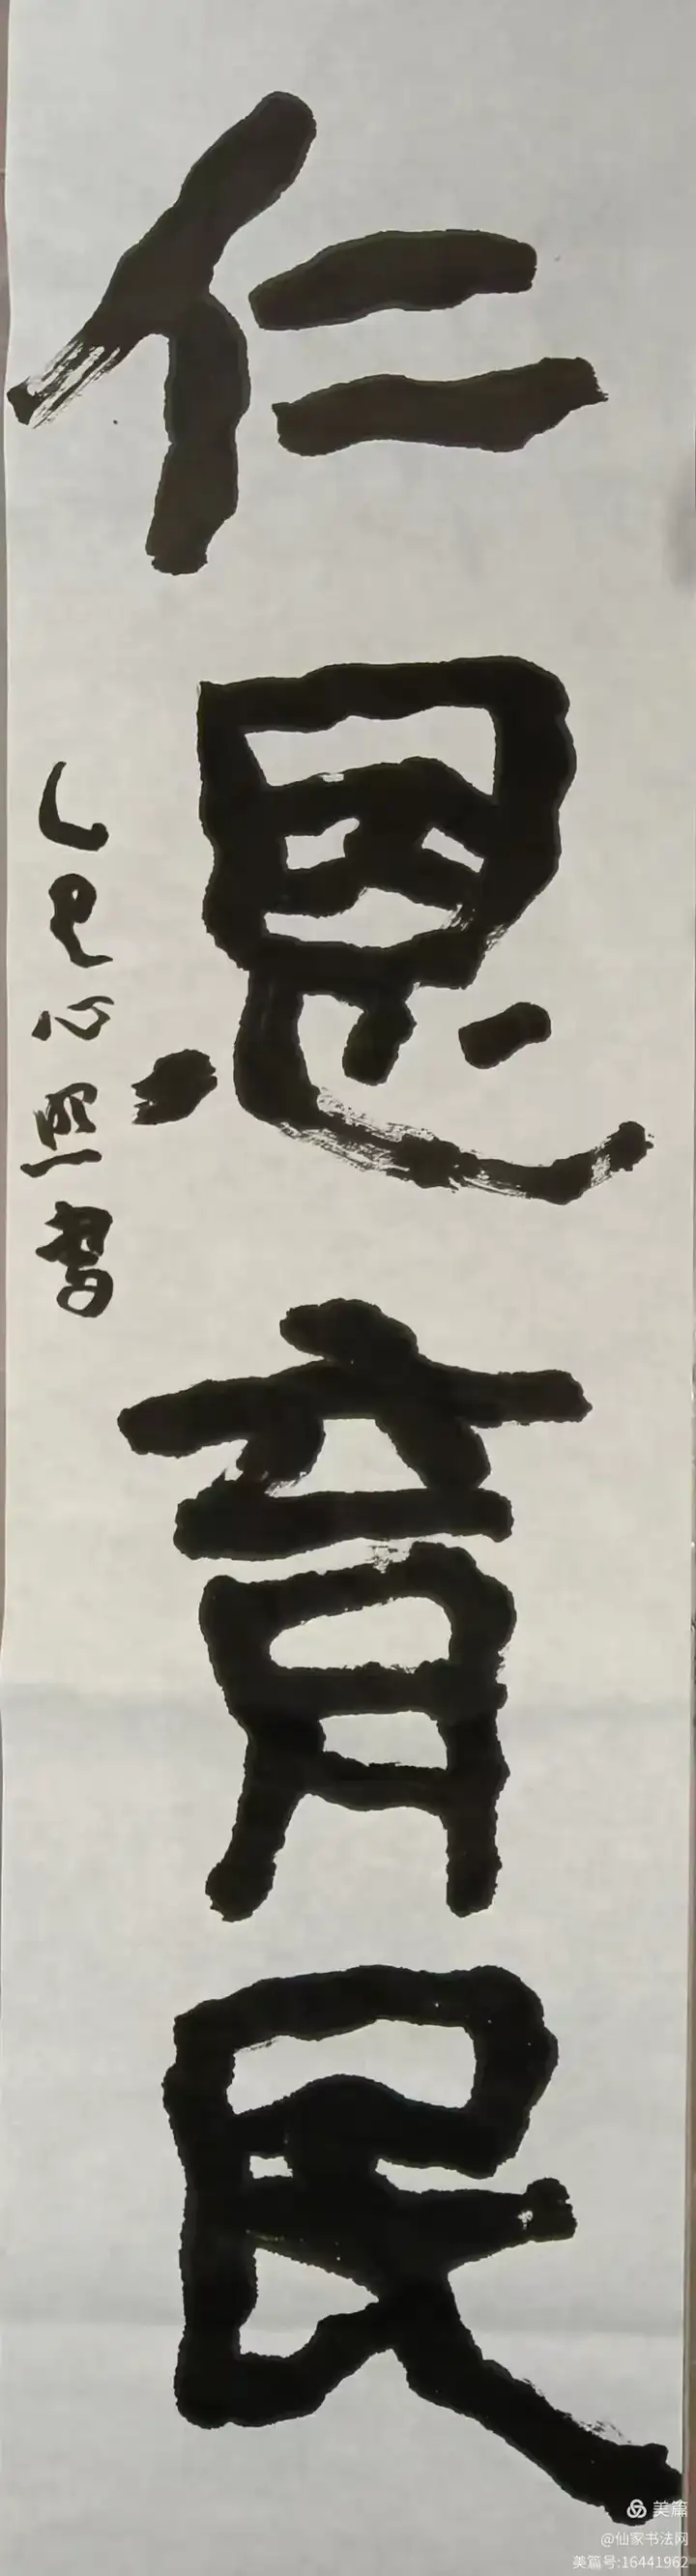 仁恩育民
乙巳心照书
美篇
@仙家书法网
美篇号:16441962